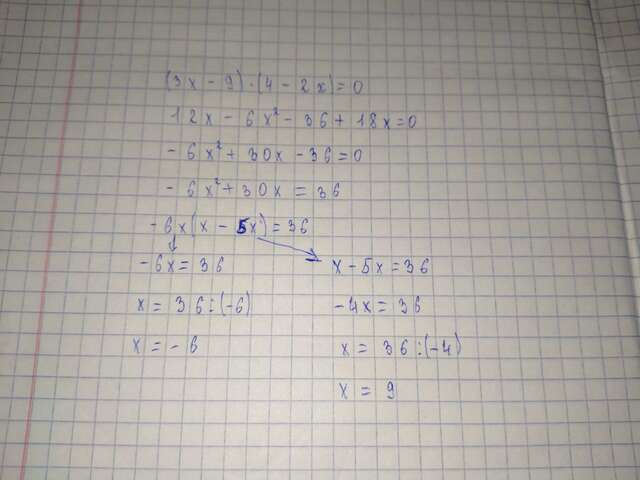 (3x - 9) · (4 - 2x) = 0
12x - 6x² - 36 + 18x = 0
- 6x² + 30x - 36 = 0
- 6x² + 30x = 36
- 6x (x - 5x) = 36
- 6x = 36
x - 5x = 36
x = 36 : (-6)
- 4x = 36
x = - 6
x = 36 : (-4)
x = 9